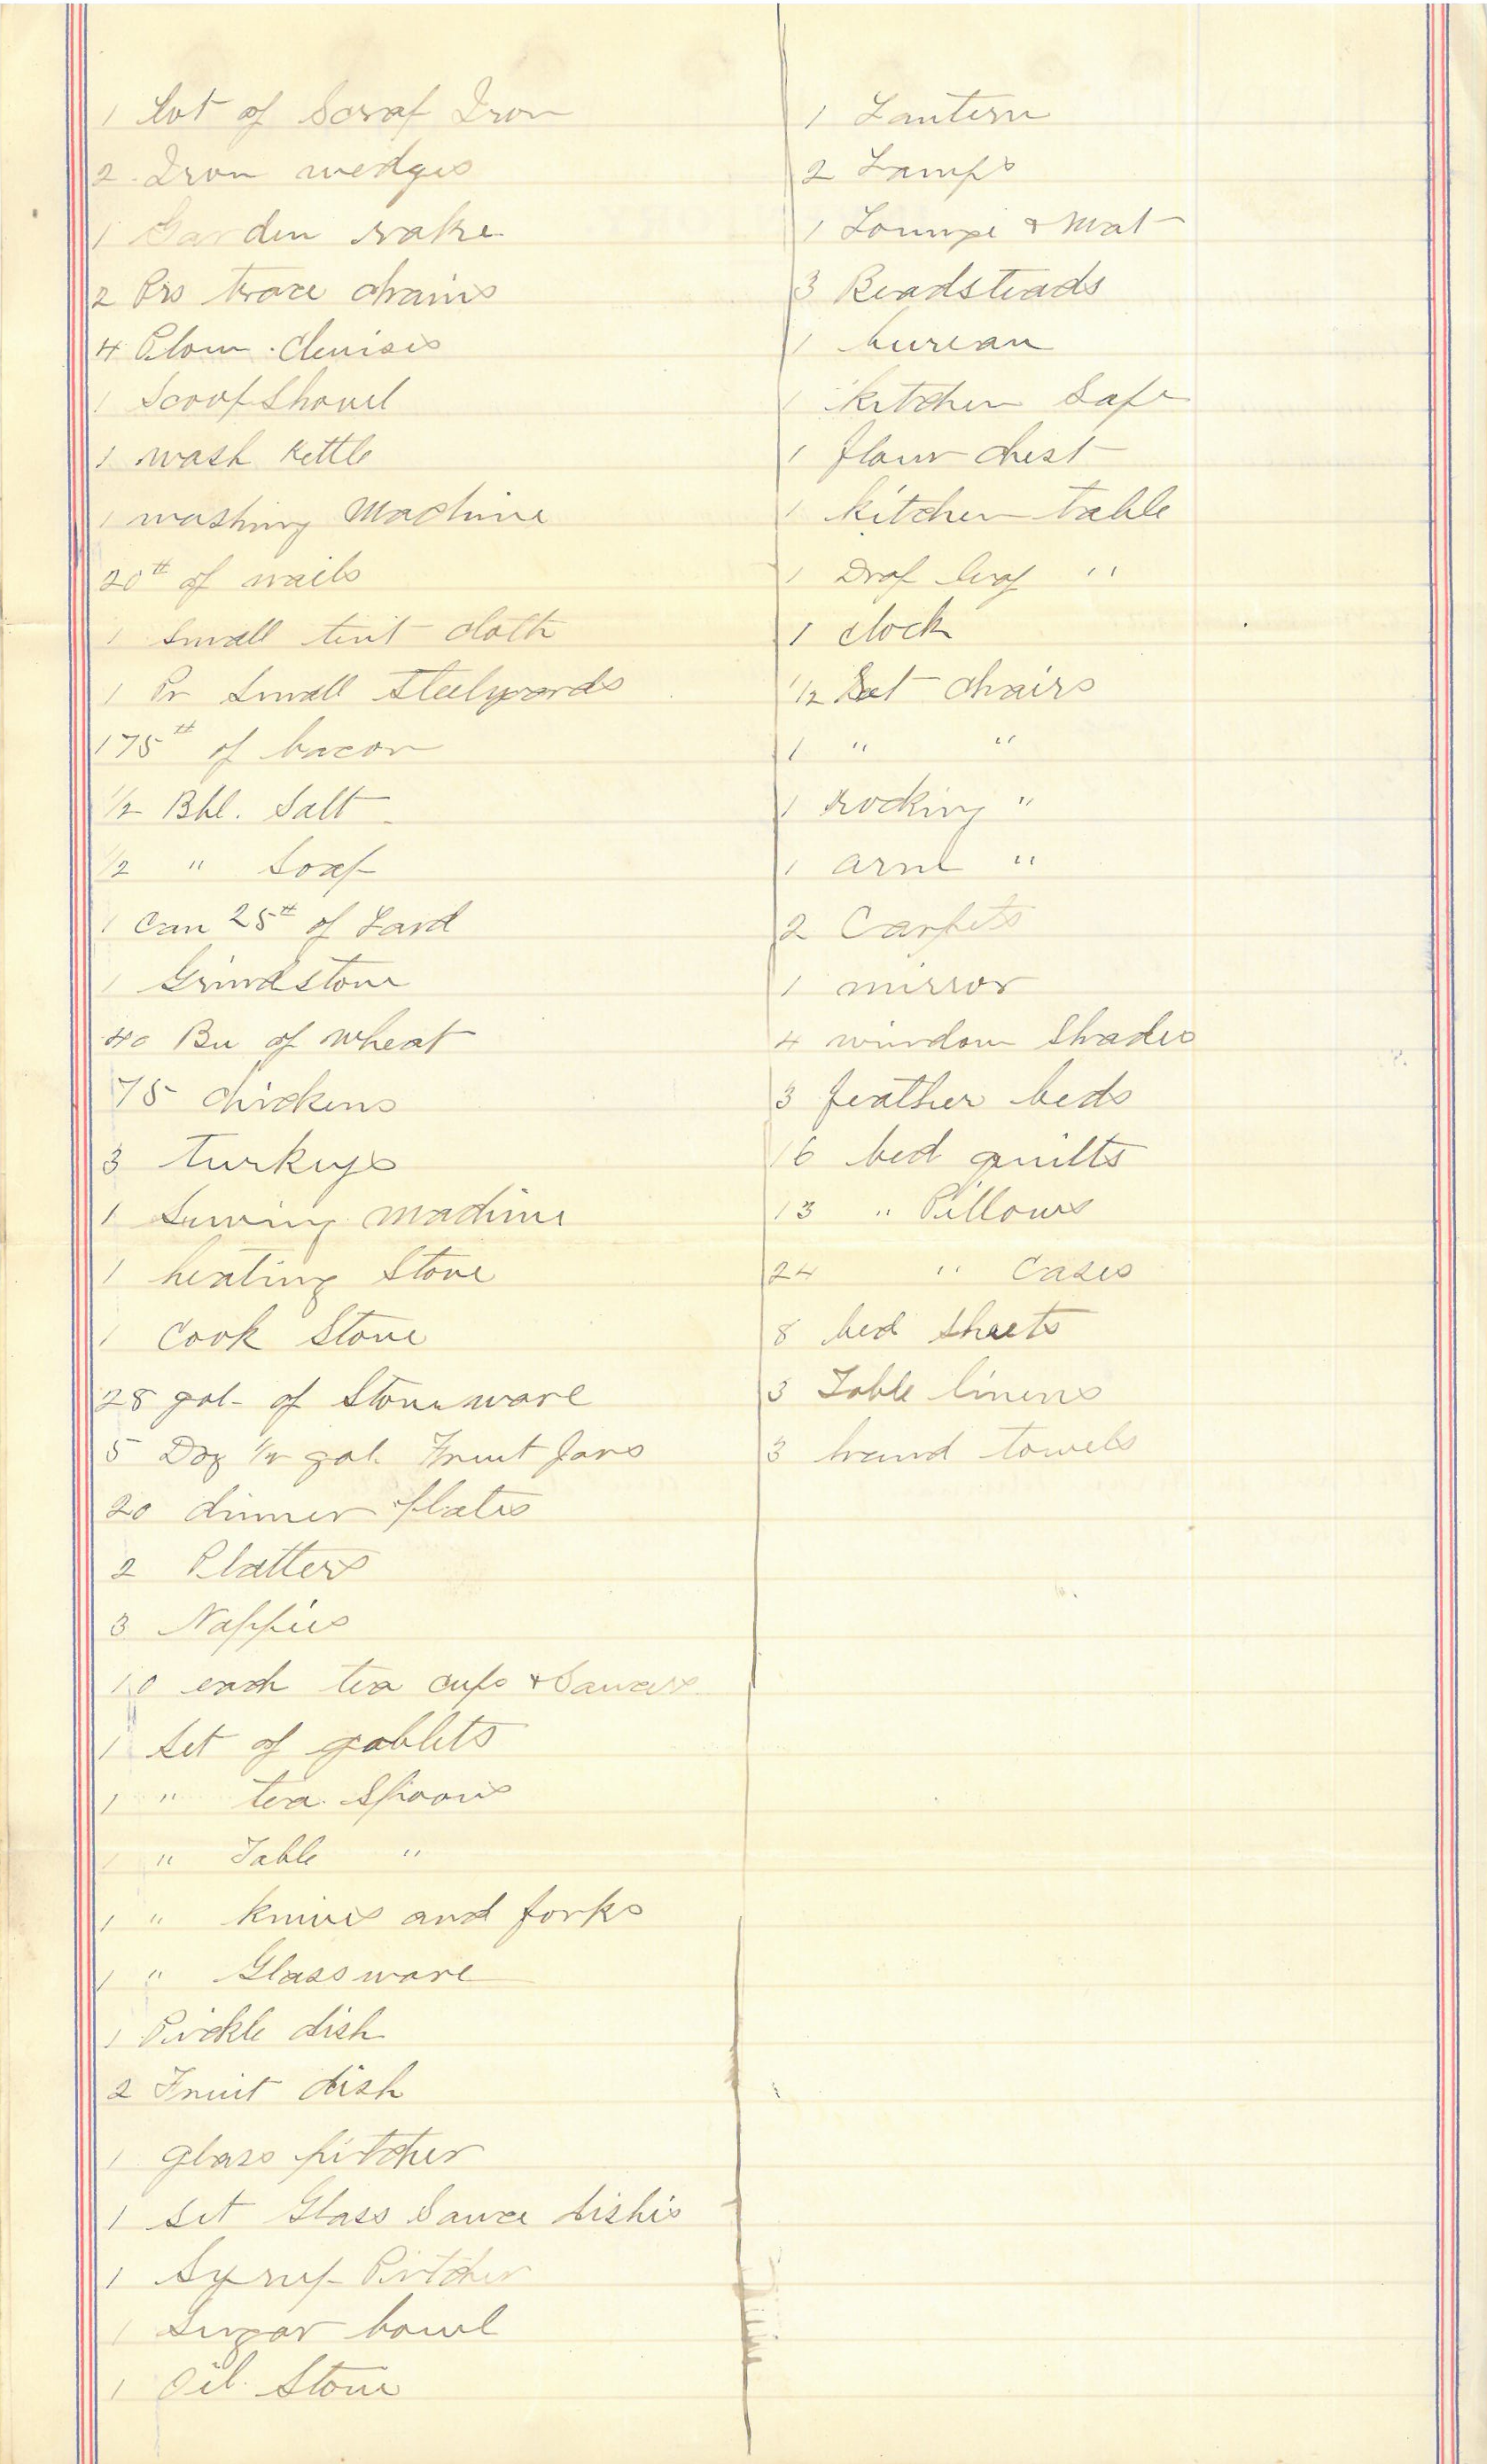 1 Lot of Scrap Iron
2 Iron wedges
1 Garden rake
2 Prs trace chains
4 Plow clevises
1 Scoop Shovel
1 wash Kettle
1 washing Machine
20# of nails
1 Small tent cloth
1 Pr Small Steelyards
175# of bacon
1/2 Bbl. Salt
1/2 " Soap
1 Can 25# of Lard
1 Grindstone
40 Bu of Wheat
75 chickens
3 Turkeys
1 Sewing machine
1 heating Stove
1 Cook Stove
28 gal. of Stoneware
5 Doz 1/2 gal. Fruit Jars
20 dinner plates
2 Platters
3 Nappies
10 each tea cups & Saucers
1 Set of goblets
1 " tea Spoons
1 " Table "
1 " knives and forks
1 " Glassware
1 Pickle dish
2 Fruit dish
1 glass pitcher
1 set Glass Sauce dishes
1 Syrup Pitcher
1 Sugar bowl
1 Oil Stove
1 Lantern
2 Lamps
1 Lounge & Mat
3 Beadsteads
1 bureau
1 kitchen Safe
1 flour chest
1 kitchen table
1 Drop leaf "
1 clock
1/2 Set chairs
1 " "
1 rocking "
1 arm "
2 Carpets
1 mirror
4 window Shades
3 feather beds
16 bed quilts
13 " Pillows
24 " Cases
8 bed sheets
3 Table linens
3 hand towels